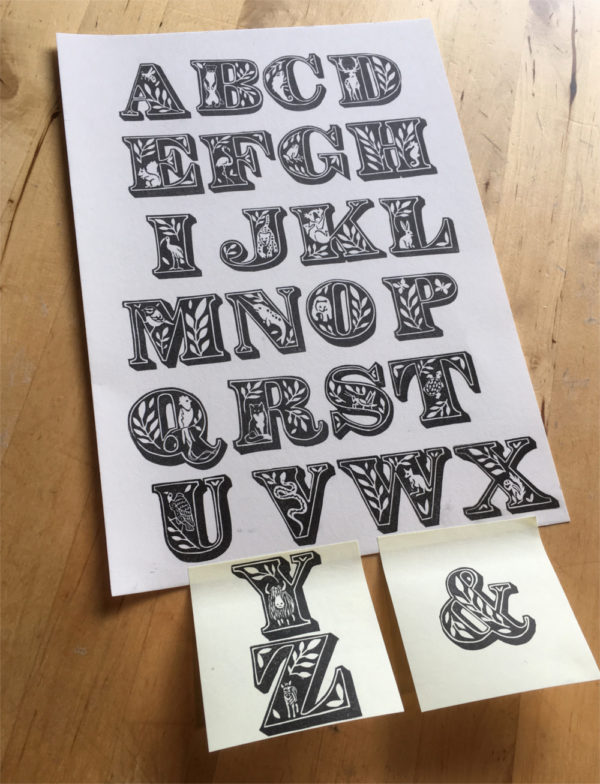 ABCD
EFGH
IJKL
MNOP
QRST
UVWX
Y
Z
&